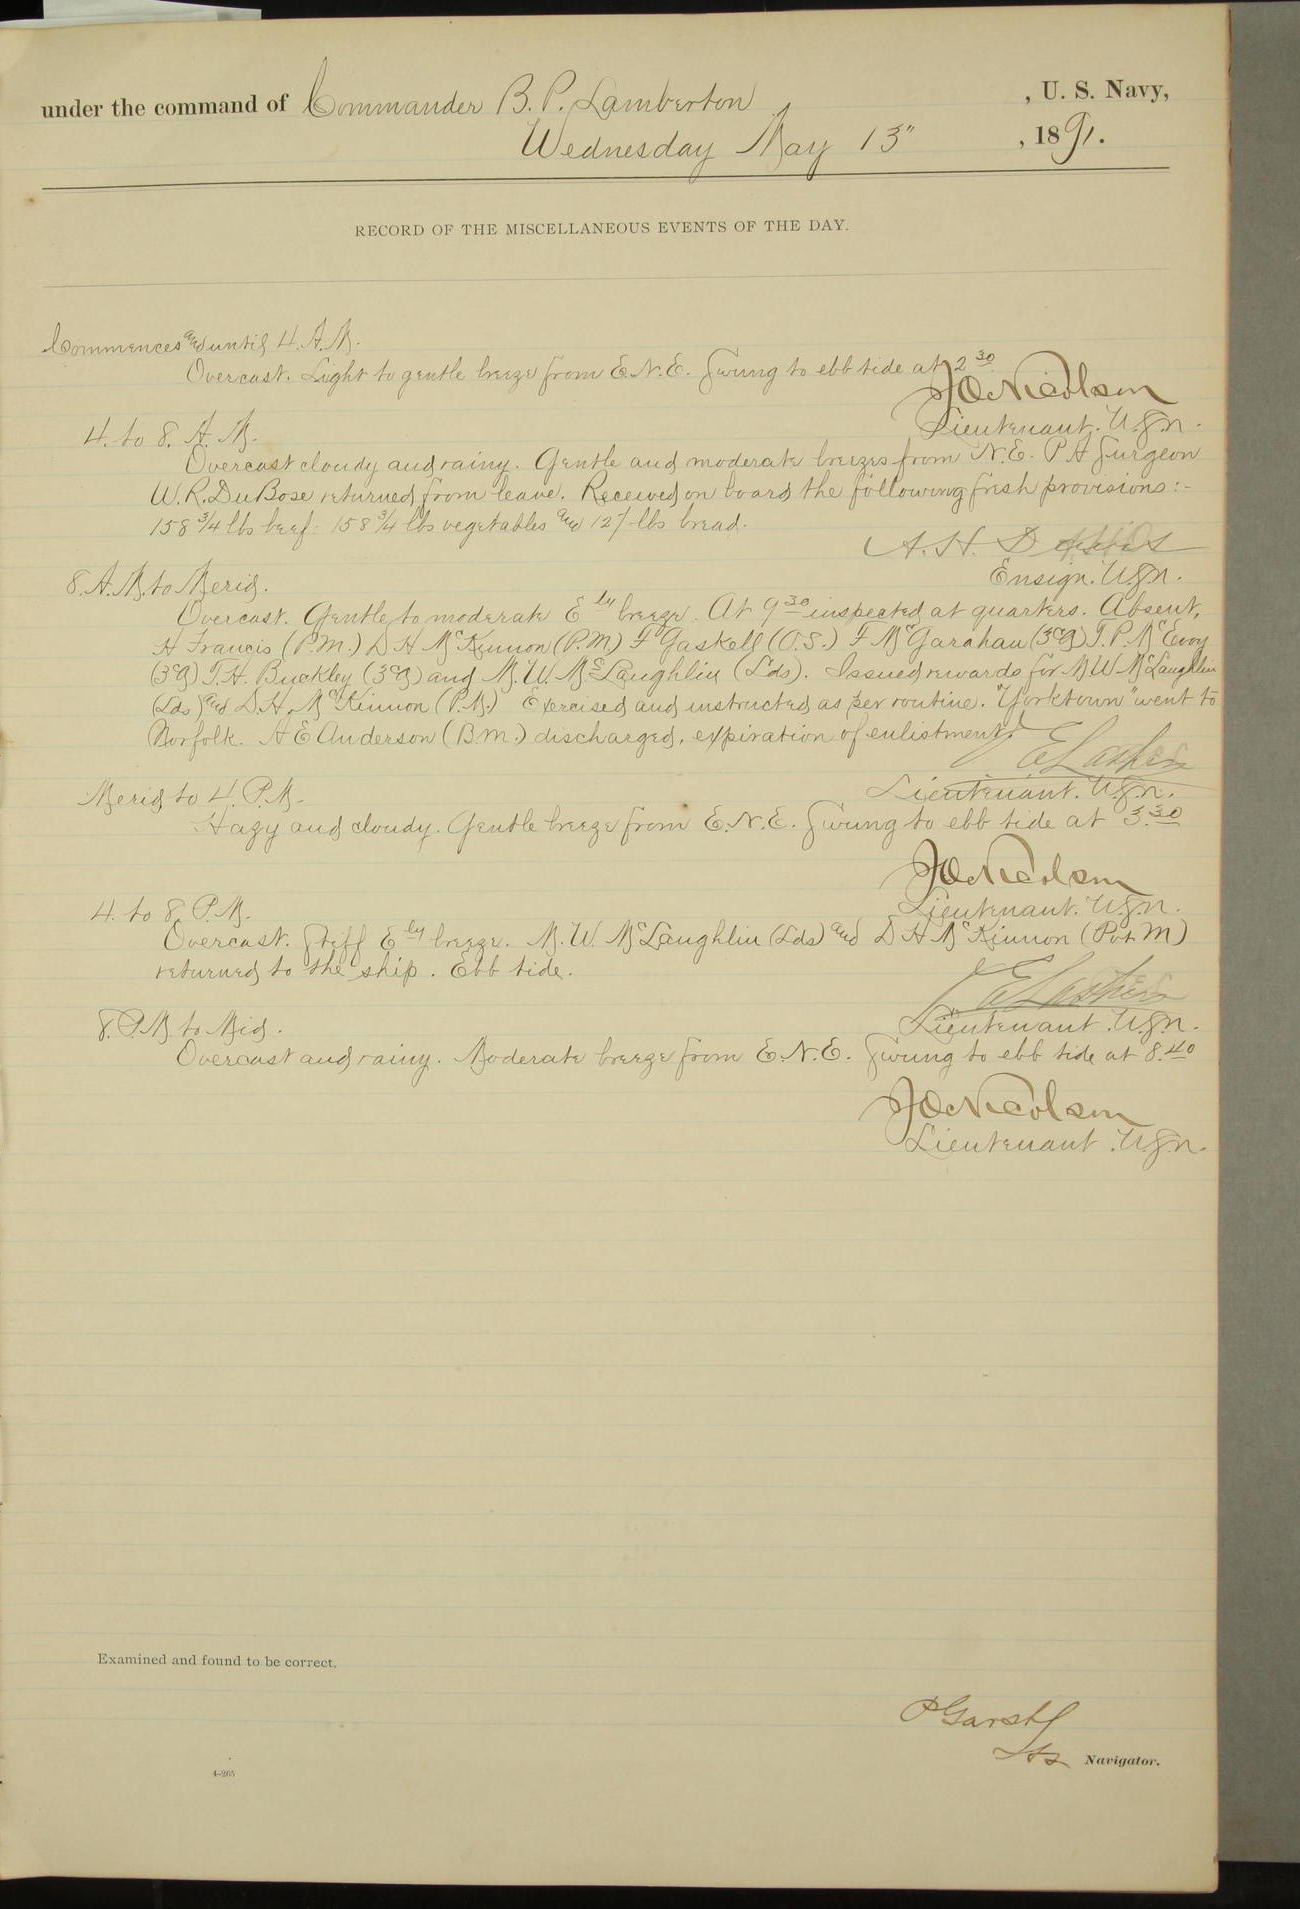 under the command of Commander B. P. Lamberton , U. S. Navy,
Wednesday May 13" , 1891.
RECORD OF THE MISCELLANEOUS EVENTS OF THE DAY.
Commences and until 4. A.M.
Overcast. Light to gentle breeze from E.N.E. Swung to ebb tide at 2 30
J O Nicolson
Lieutenant. U.S.N.
4. to 8. A. M.
Overcast cloudy and rainy. Gentle and moderate breezes from N.E. P A Surgeon
W. R. DuBose returned from leave. Received on board the following fresh provisions:-
158 3/4 lbs beef: 158 3/4 lbs vegetables and 127 lbs bread.
A. H. Davis
Ensign. U.S.N.
8. A.M. to Merid.
Overcast. Gentle to moderate E ly breeze. At 9 30 inspected at quarters. Absent,
H Francis (P.M.) D H McKinnon (P.M.) F Gaskell (O.S.) F McGarahan (3cg) T. P. McEvoy
(3cg) T. H. Buckley (3cg) and M. W. McLaughlin (Lds). Issued rewards for M W McLaughlin
(Lds) and D. H. McKinnon (P.M.) Exercised and instructed as per routine. "Yorktown" went to
Norfolk. A E Anderson (B.M.) discharged, expiration of enlistment.
Lieutenant. U.S.N.
Merid to 4. P.M.
Hazy and cloudy. Gentle breeze from E.N.E. Swung to ebb tide at 3.30
J O Nicolson
Lieutenant. U.S.N.
4. to 8. P.M.
Overcast. Stiff E ly breeze. M. W. McLaughlin (Lds) and D H McKinnon (Pvt M)
returned to the ship. Ebb tide.
Lieutenant. U.S.N.
8. P.M. to Mid.
Overcast and rainy. Moderate breeze from E.N.E. Swung to ebb tide at 8.40
J O Nicolson
Lieutenant. U.S.N.
Examined and found to be correct.
P Garst
Navigator.
4-265